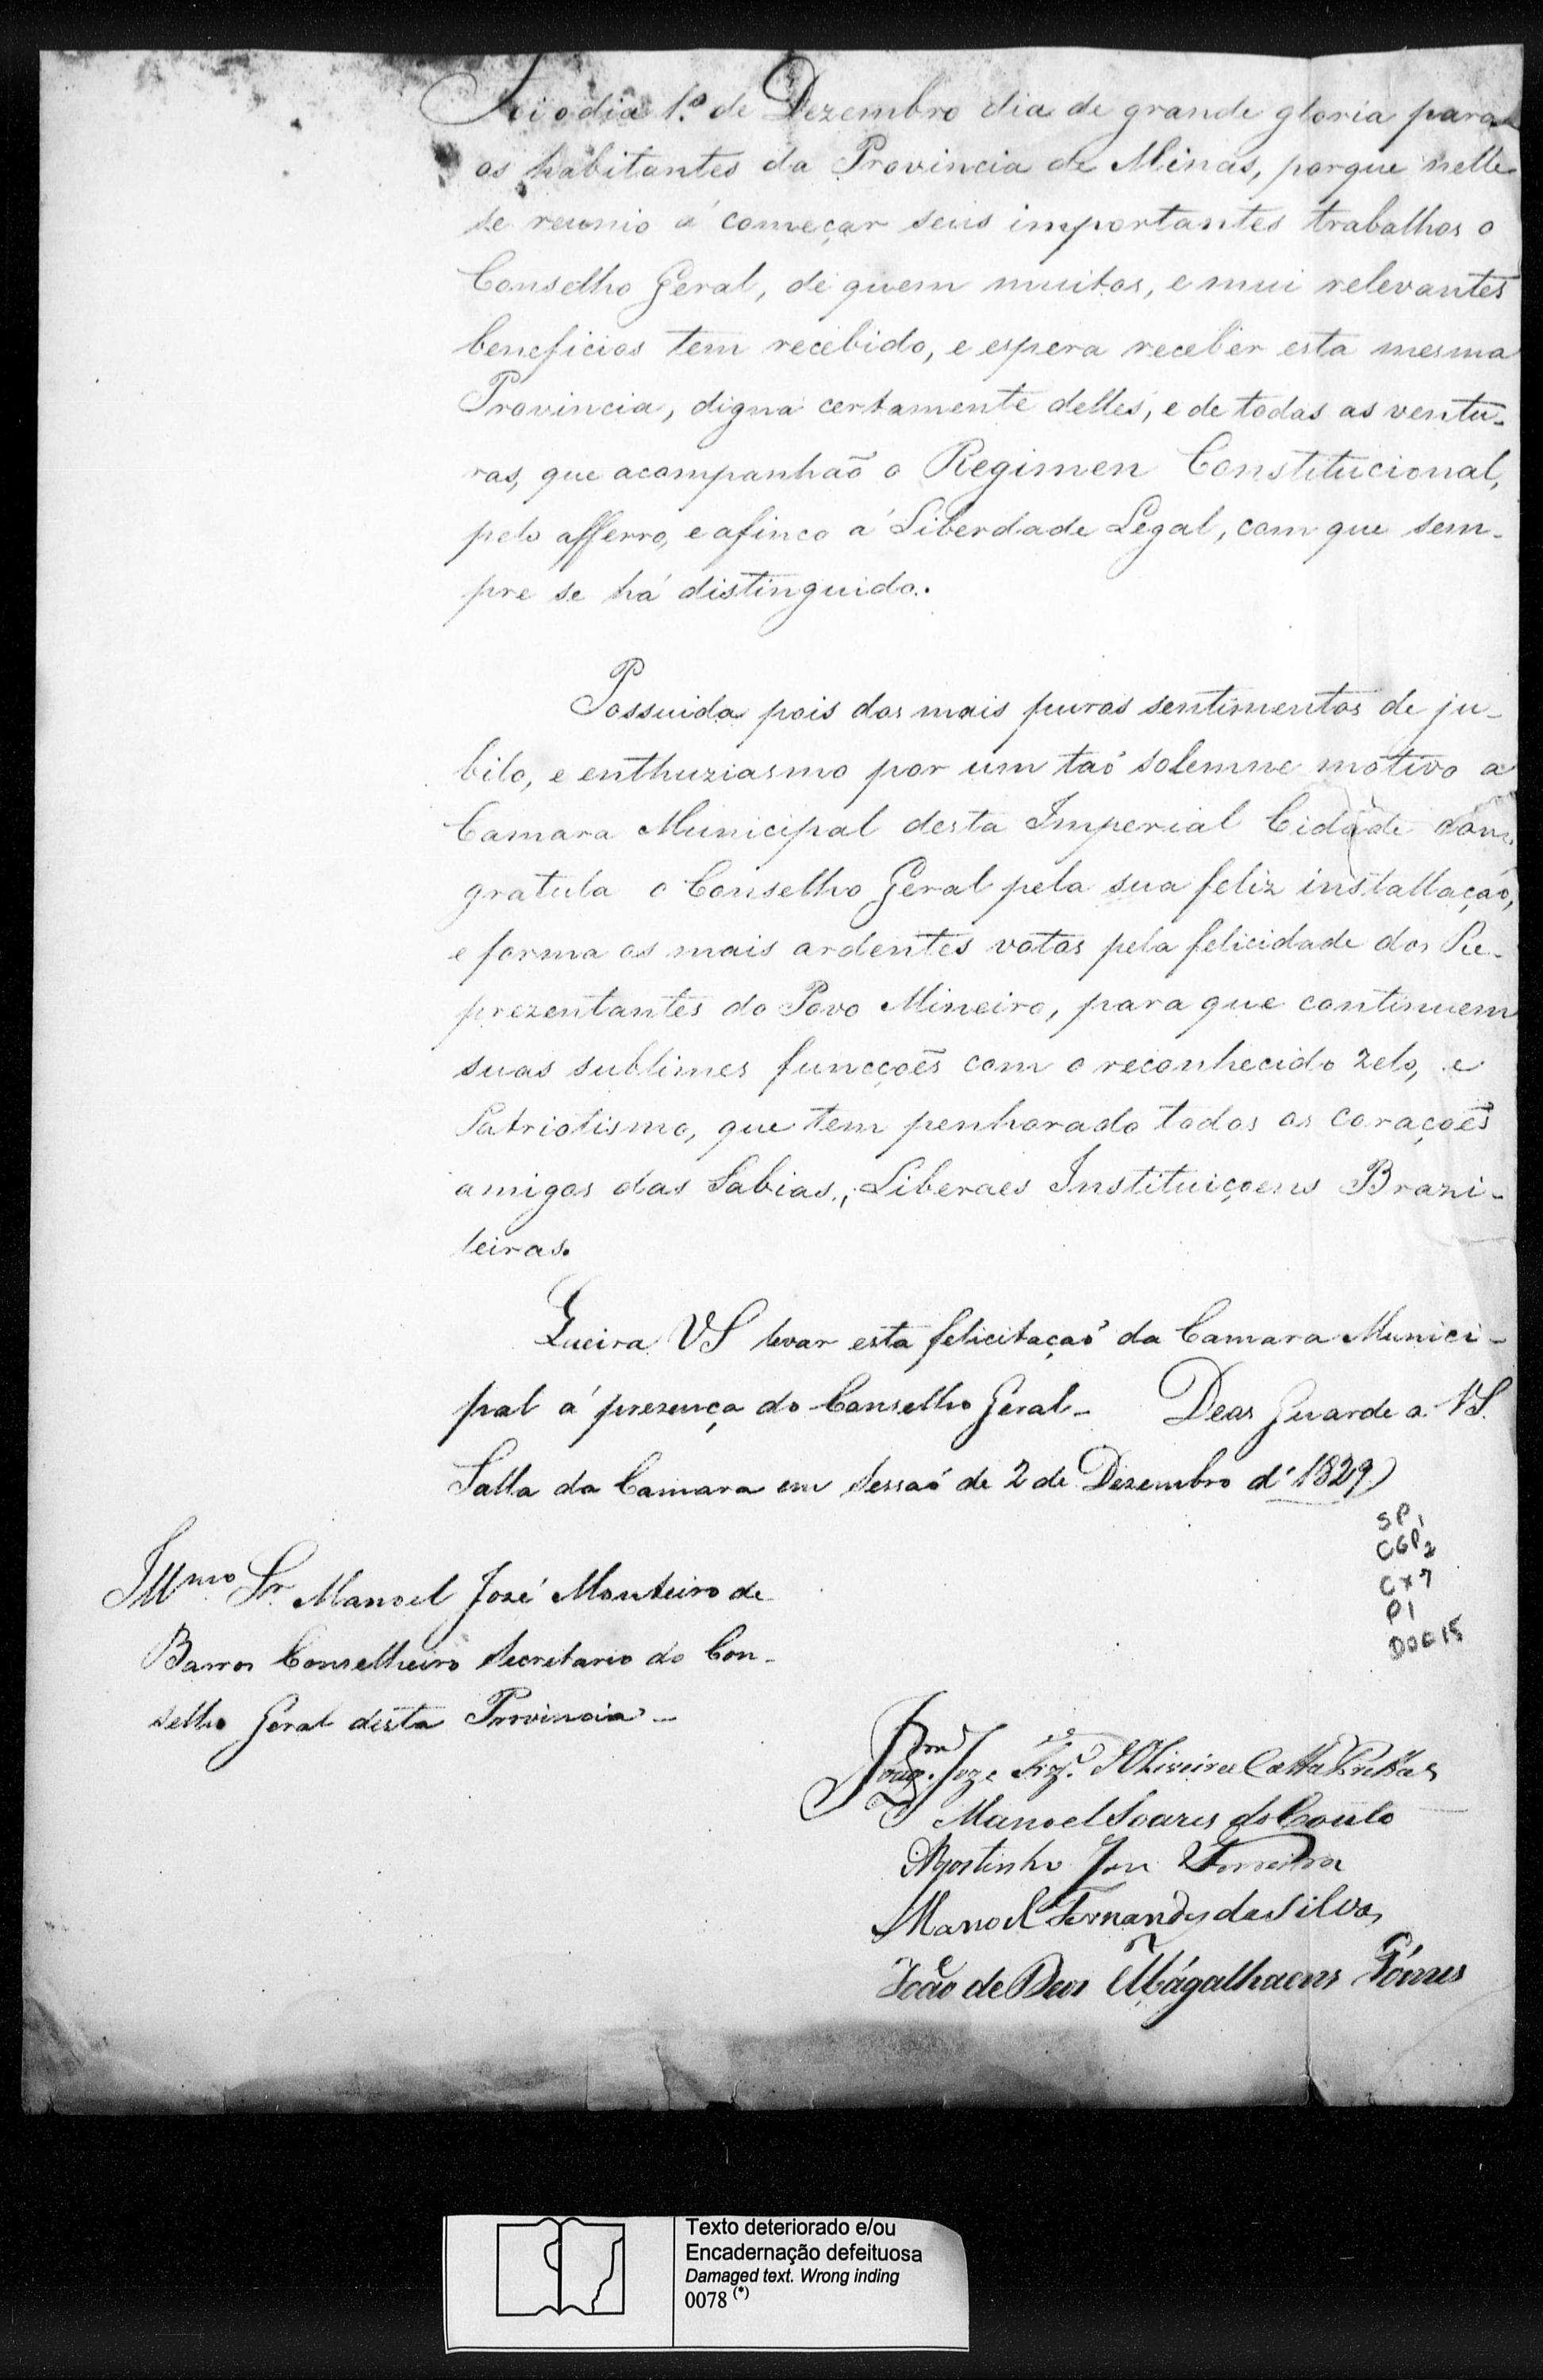 Foi o dia 1.º de Dezembro dia de grande gloria para
os habitantes da Provincia de Minas, porque nelle
se reunio a' começar seus importantes trabalhos o
Conselho Geral, de quem muitos, e mui relevantes
beneficios tem recebido, e espera receber esta mesma
Provincia, digna certamente delles, e de todas as ventu-
ras, que acompanhaõ o Regimen Constitucional,
pelo afferro, e afinco a' Liberdade Legal, com que sem-
pre se há distinguido.
Possuida pois dos mais puros sentimentos de ju-
bilo, e enthuziasmo por um taõ solemne motivo a
Camara Municipal desta Imperial Cidade con-
gratula o Conselho Geral pela sua feliz installaçaõ,
e forma os mais ardentes votos pela felicidade dos Re-
prezentantes do Povo Mineiro, para que continuem
suas sublimes funcçoẽs com o reconhecido zelo, e
Patriotismo, que tem penhorado todos os coraçoẽs
amigos das Sabias, Liberaes Instituiçoens Brazi-
leiras.
Queira VS levar esta felicitaçaõ da Camara Munici-
pal á prezença do Conselho Geral - Deos Guarde a VS.
Salla da Camara em Sessaõ de 2 de Dezembro d' 1829
SP1
CGP2
CX7
P1
DOC15
Illmo. Sr. Manoel José Monteiro de
Barros Conselheiro Secretario do Con-
selho Geral desta Provincia -
Joze d'Oliveira
Manoel Soares do Couto
Agostinho Joze Ferreira
Manoel Fernandes da Silva
João de Deos Mágalhaens Gómes
Texto deteriorado e/ou
Encadernação defeituosa
Damaged text. Wrong inding
0078 (*)